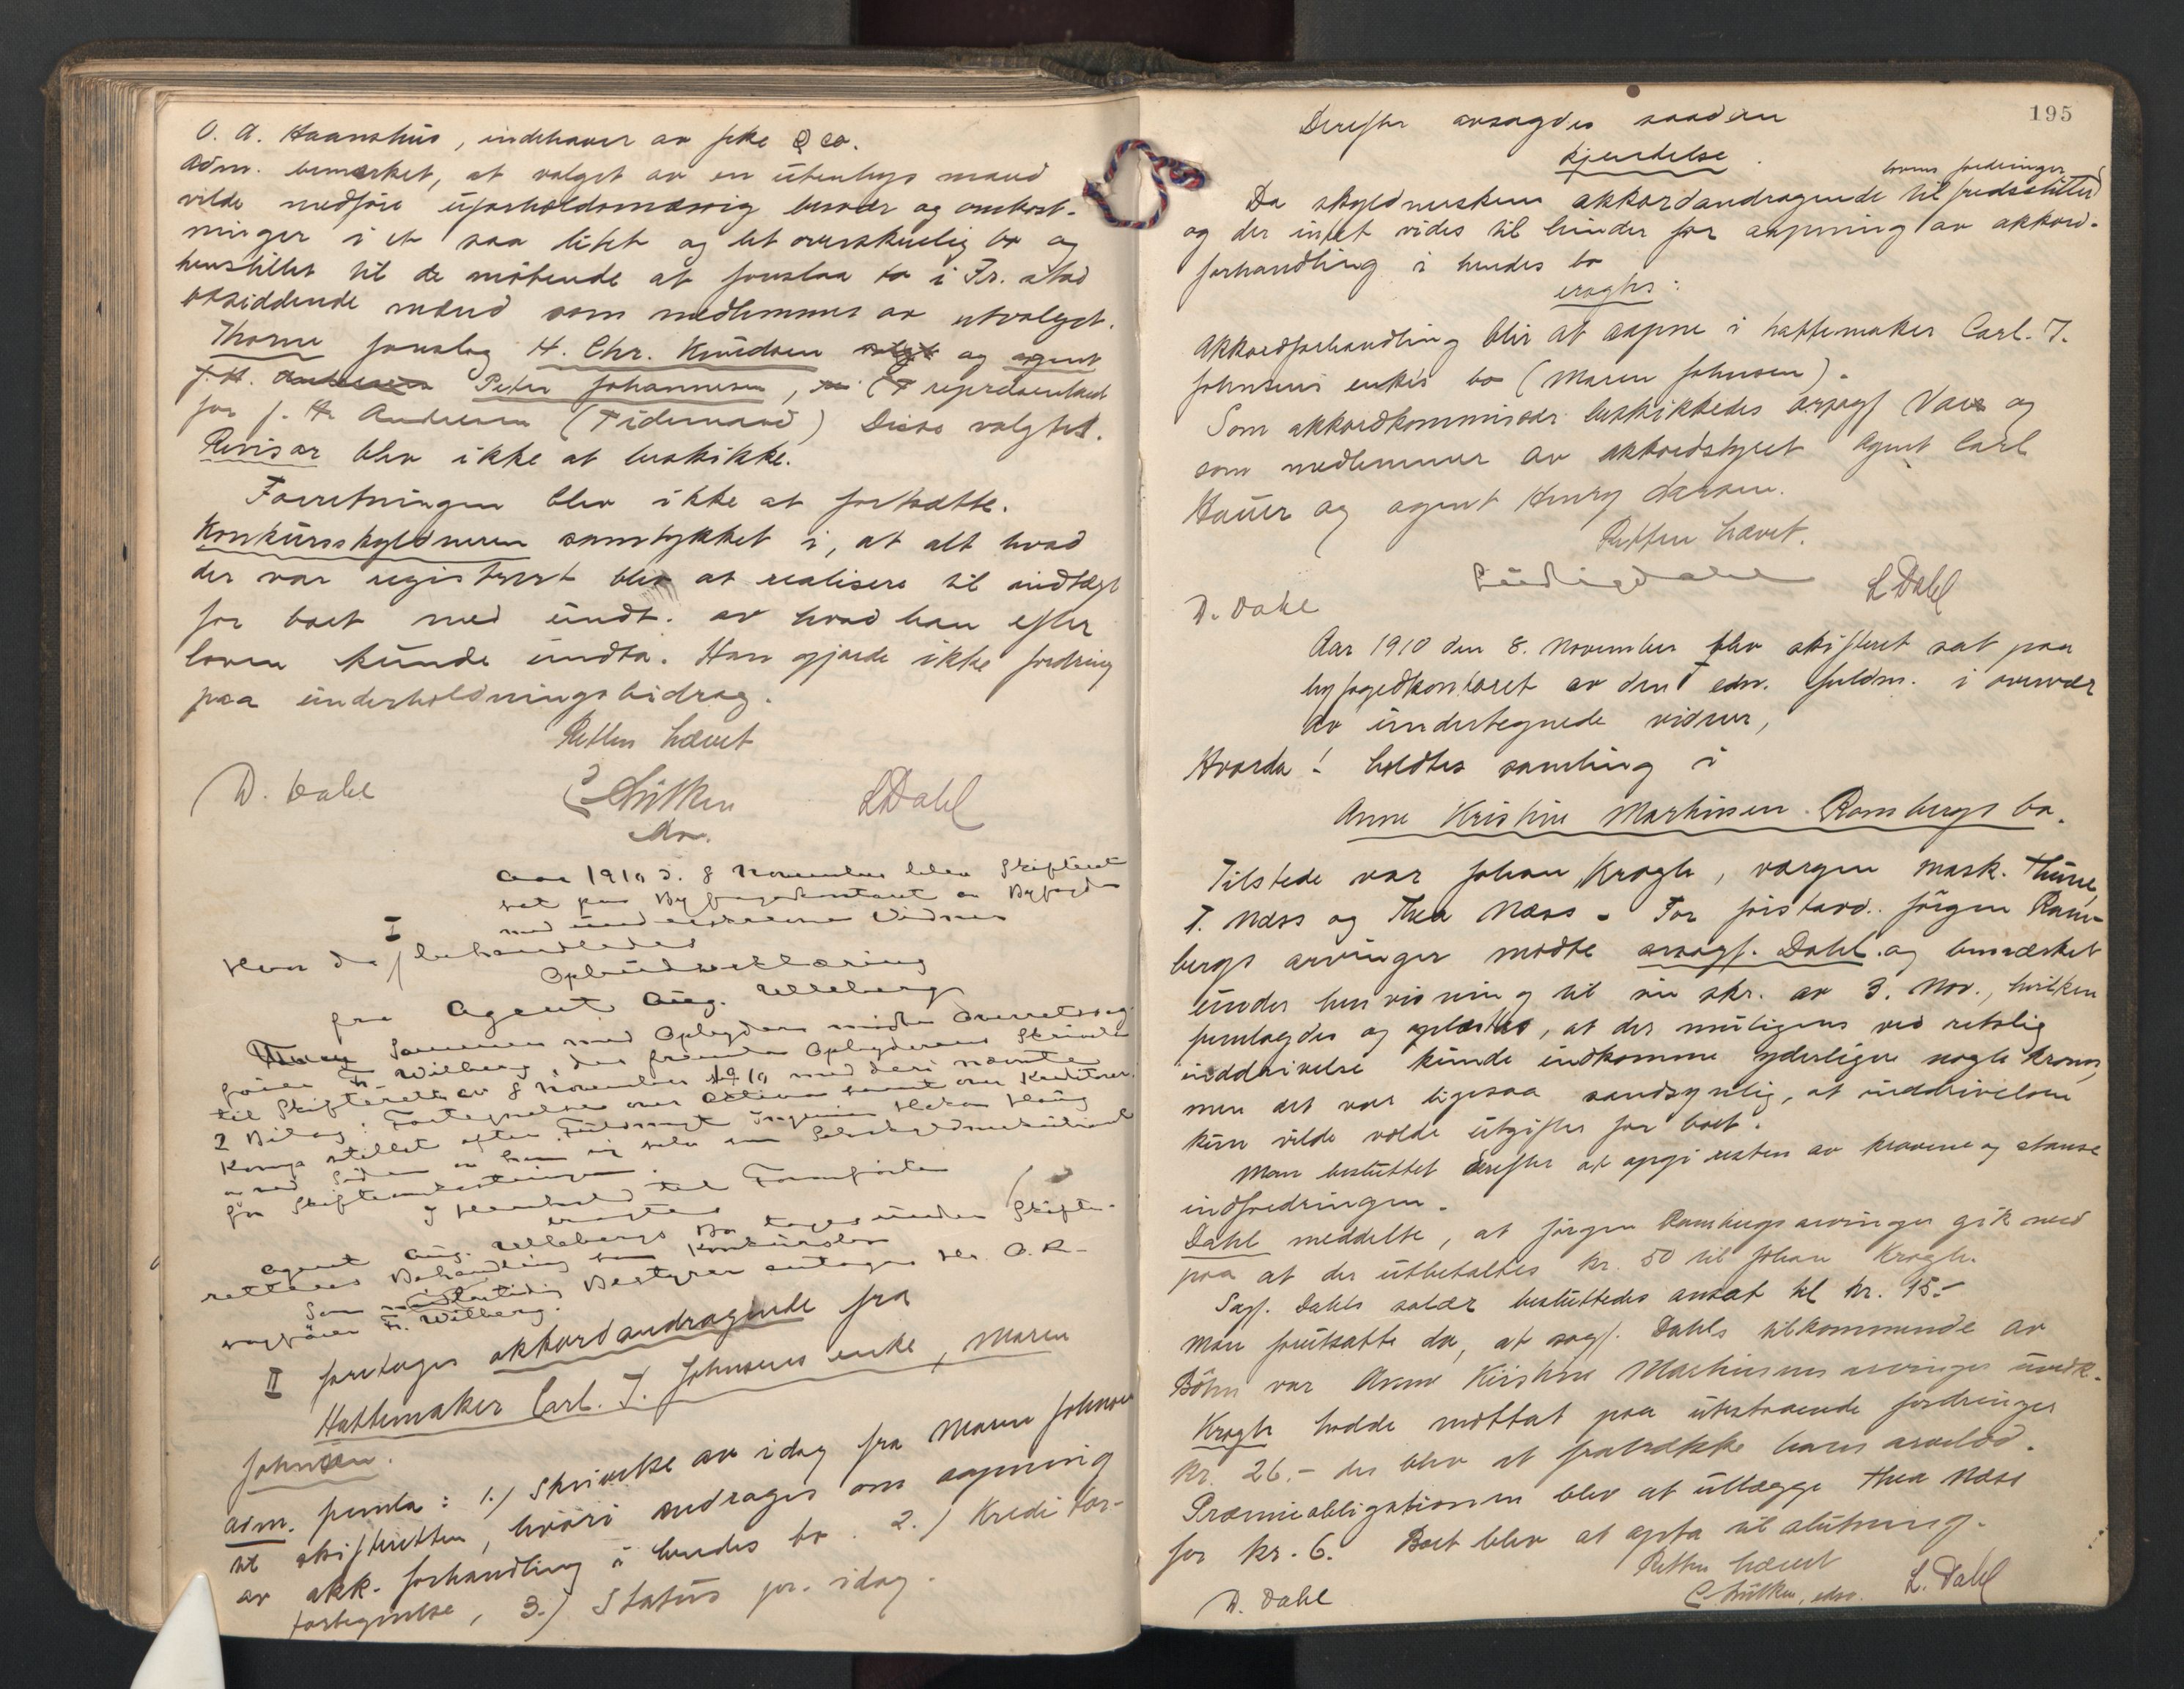 O. A. Haanshus, indehaver av ske & co.
Adm. bemerket, at valget av en utenbys mand
vilde medføre uforholdsmæssig besvær og omkost-
ninger i et saa litet og let overskuelig bo og
henstillet til de møtende at foreslaa to i Fr. stad
bosiddende mænd som medlemmer av utvalget.
Thorne foreslog H. Chr. Knudsen og agent
Peter Johannesen, representant
for J. H. Andresen (Tidemand) Disse valgtes.
Revisor blev ikke at beskikke.
Forretningen blev ikke at fortsætte.
Konkursskyldneren samtykket i, at alt hvad
der var registrert blir at realisere til indtægt
for boet med undt. av hvad han efter
loven kunde undta. Han gjorde ikke fordring
paa underholdningsbidrag.
Retten hævet
D. Dahl Lütken LDahl
Aar 1910 d. 8 November blev Skifteret
sat paa Byfogedkontoret av Byfogden
med undertegnede Vidner
Hvorda I behandledes
Opbudserklæring
fra Agent Aug. Ulleberg
Sammen med Opbyderen møtte Overretssag-
fører Fr. Wilberg, der fremla Opbyderens Skrivelse
til Skifteretten av 8 November 1910 med deri nævnte
2 Bilag: Fortegnelse over Aktiva samt over Kreditorer.
for Skifteomkostningene.
I Henhold til Foranførte
eragtes
Agent Aug. Ullebergs Bo tages under Skifte-
rettens Behandling som Konkursbo
Som midlertidig Bestyrer antages Hr. O.R-
sagfører Fr. Wilberg.
II foretoges akkordandragende fra
Hattemaker Carl. J. Johnsens enke, Maren
Johnsen.
Adm. fremla: 1.) Skrivelse av idag fra Maren Johnsen
til skifteretten, hvori andrages om aapning
av akk. forhandling i hendes bo. 2.) Kreditor-
fortegnelse, 3.) Status pr. idag.
195
Derefter avsagdes saadan
kjendelse.
lovens fordringer
Da skyldnerskens akkordandragende til fredsstiller
og der intet vides til hinder for aapning av akkord-
forhandling i hendes bo
eragtes:
Akkordforhandling blir at aapne i hattemaker Carl. J.
Johnsens enkes bo (Maren Johnsen).
Som akkordkommissær beskikkedes orsagf. Vaer og
som medlemmer av akkordstyret Agent Carl
Hauer og agent Henry Larsen.
Retten hævet.
D. Dahl L Dahl
Aar 1910 den 8. November blev skifteret sat paa
byfogedkontoret av den edsv. fuldm. i overvær
av undertegnede vidner,
Hvorda! holdtes samling i
Anne Kristine Martinsen Rambergs bo.
Tilstede var Johan Krogh, værgen mask. Thune,
T. Næss og Thea Næss. For foretavd. Jørgen Ram-
bergs arvinger møtte orsagf. Dahl og bemærket
under henvisning til sin skr. av 3. Nov., hvilken
fremlagdes og oplæstes, at der muligens ved retslig
inddrivelse kunde indkomme yderligere nogle kroner,
men det var ligesaa sandsynlig, at inddrivelsen
kun vilde volde utgifter for boet.
Man besluttet derefter at opgi resten av kravene og stanse
indfordringen.
Dahl meddelte, at Jørgen Rambergs arvinger gik med
paa at der utbetaltes kr. 50 til Johan Krogh.
Sagf. Dahls salær besluttedes ansat til kr. 15.-
Man forutsatte da, at sagf. Dahls tilkommende av
Böhn var Anne Kirstine Martinsens arvinger uvedk.
Krogh hadde mottat paa utestaaende fordringer
kr. 26.- der blev at fratrække hans arvelod.
Præmieobligationen blev at utlægge Thea Næss
for kr. 6. Boet blev at opta til slutning.
Retten hævet
D. Dahl C Lütken, edsv. L. Dahl